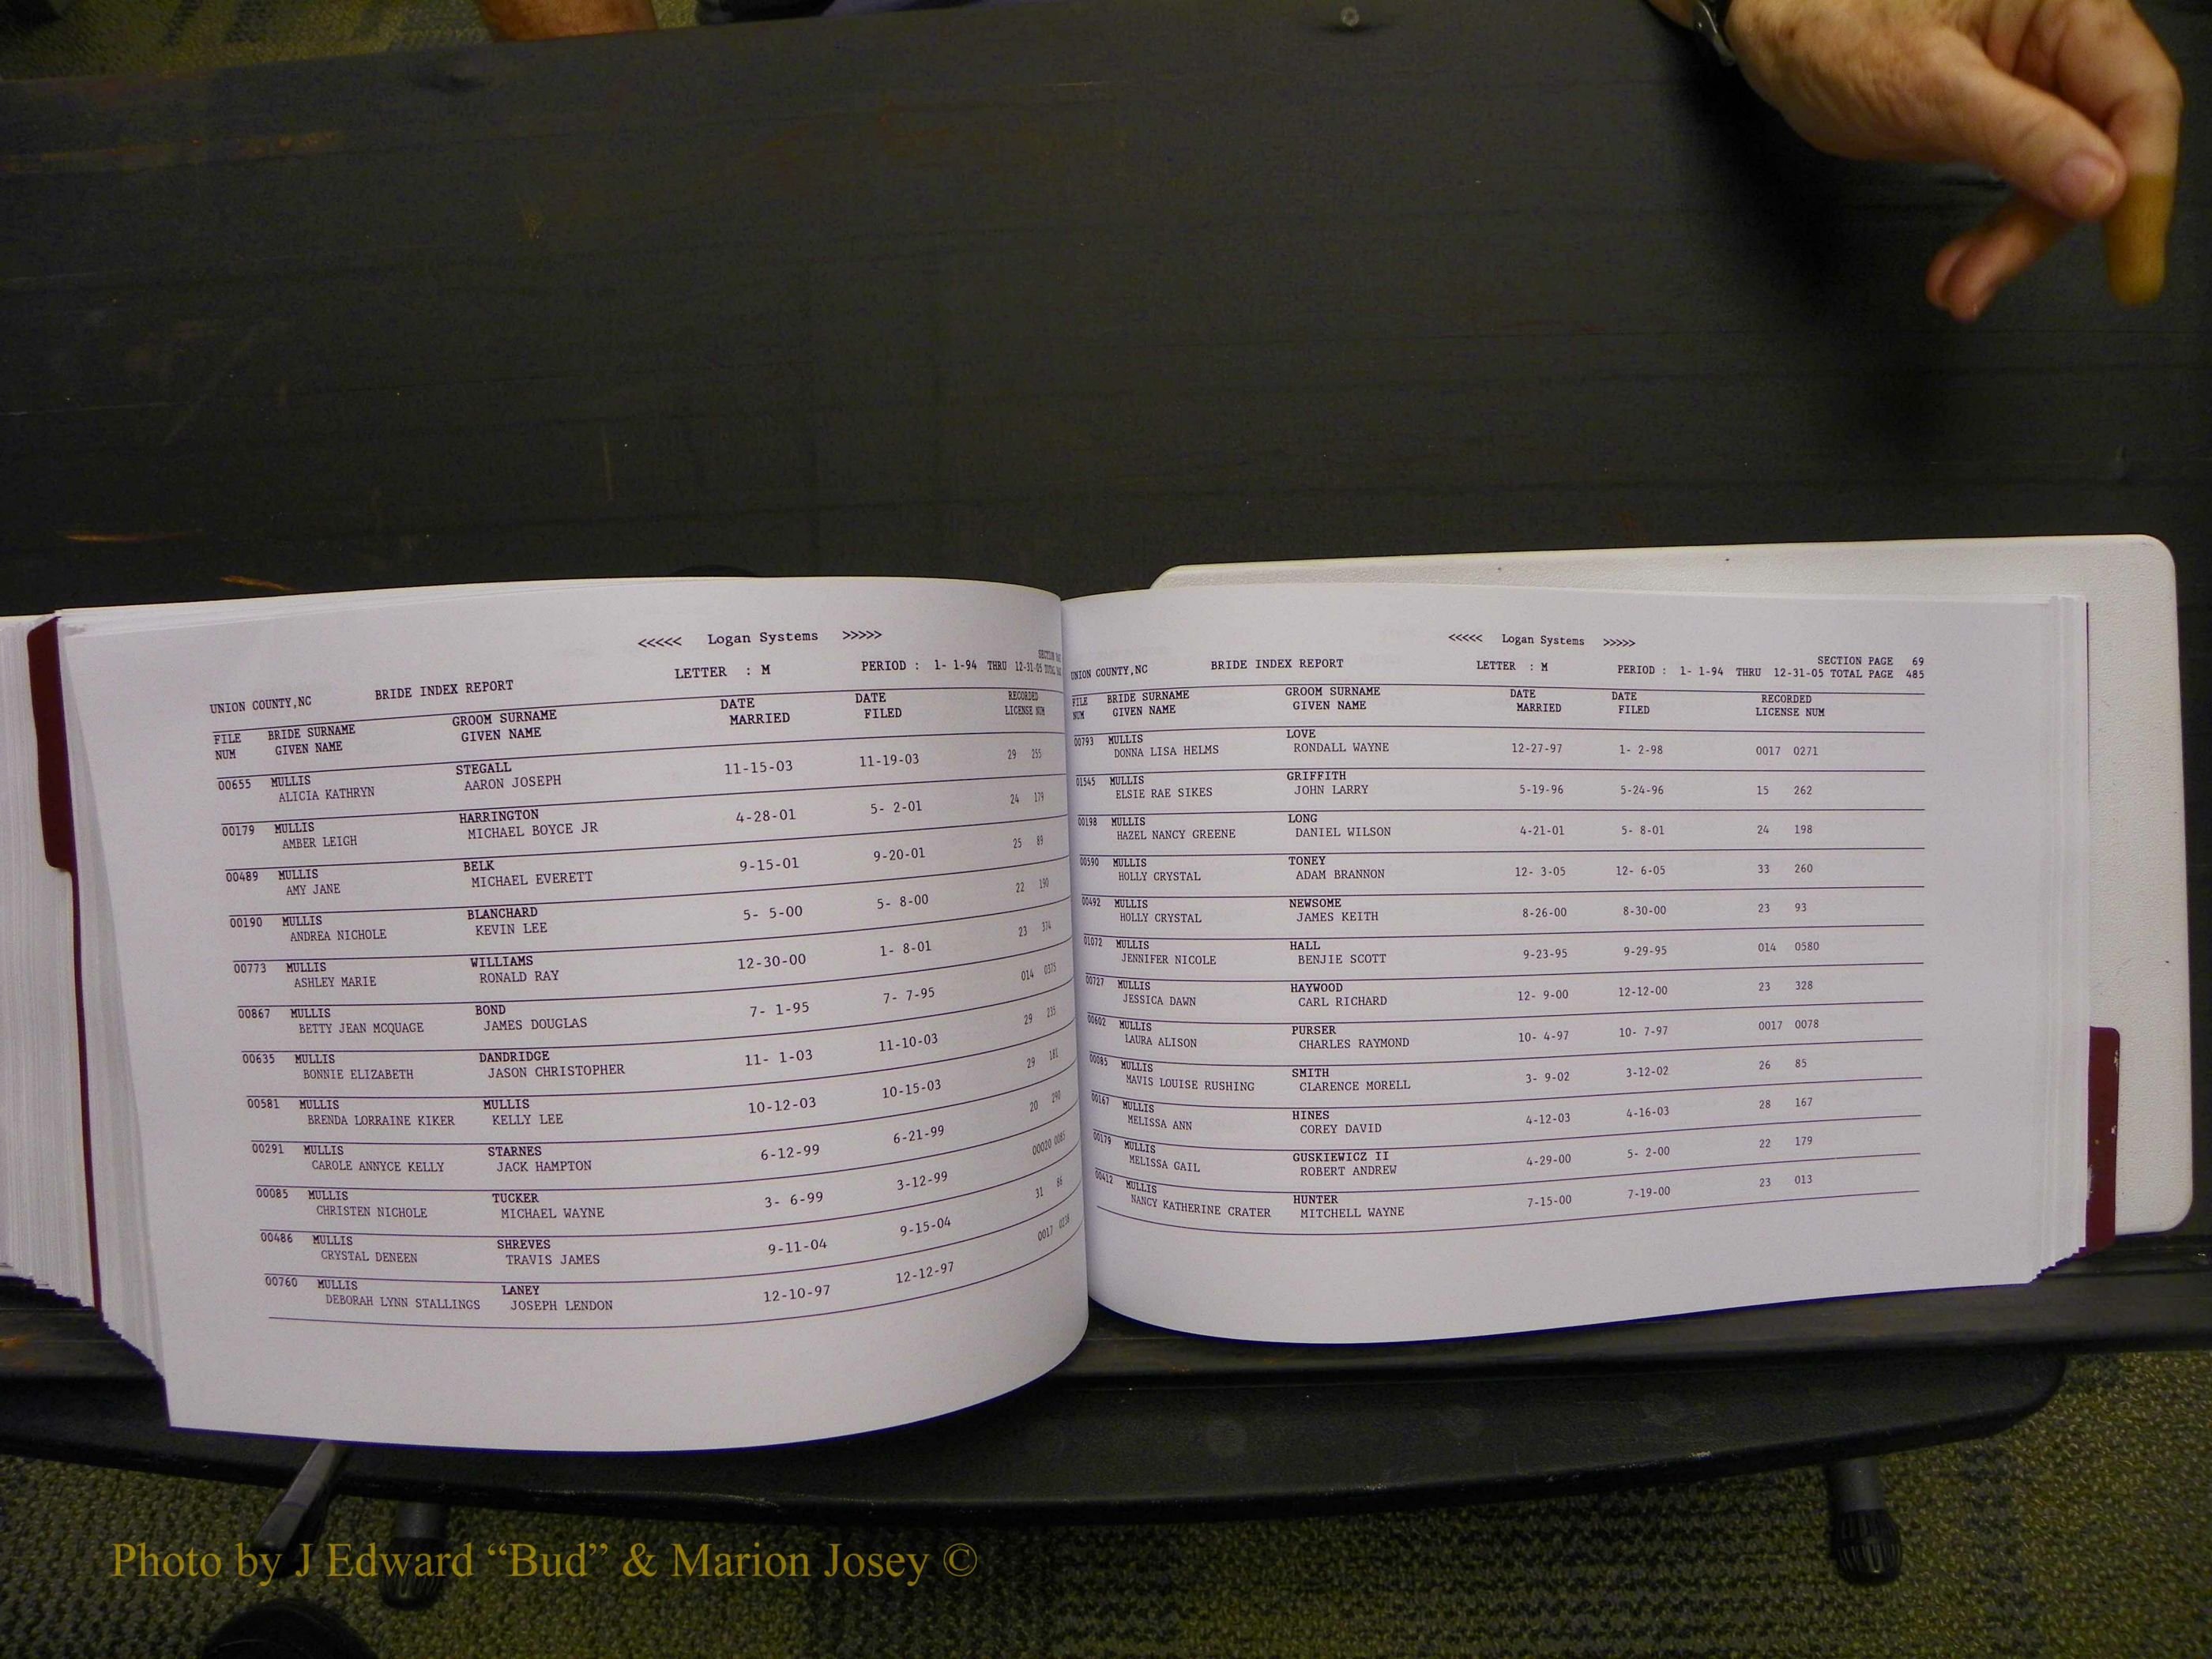 <<<<< Logan Systems >>>>>
UNION COUNTY,NC BRIDE INDEX REPORT LETTER : M PERIOD : 1- 1-94 THRU 12-31-05 TOTAL
SECTION
FILE BRIDE SURNAME GROOM SURNAME DATE DATE RECORDED
NUM GIVEN NAME GIVEN NAME MARRIED FILED LICENSE NUM
00655 MULLIS STEGALL 11-15-03 11-19-03 29 255
ALICIA KATHRYN AARON JOSEPH
00179 MULLIS HARRINGTON 4-28-01 5- 2-01 24 179
AMBER LEIGH MICHAEL BOYCE JR
00489 MULLIS BELK 9-15-01 9-20-01 25 89
AMY JANE MICHAEL EVERETT
00190 MULLIS BLANCHARD 5- 5-00 5- 8-00 22 190
ANDREA NICHOLE KEVIN LEE
00773 MULLIS WILLIAMS 12-30-00 1- 8-01 23 374
ASHLEY MARIE RONALD RAY
00867 MULLIS BOND 7- 1-95 7- 7-95 014 0375
BETTY JEAN MCQUAGE JAMES DOUGLAS
00635 MULLIS DANDRIDGE 11- 1-03 11-10-03 29 235
BONNIE ELIZABETH JASON CHRISTOPHER
00581 MULLIS MULLIS 10-12-03 10-15-03 29 181
BRENDA LORRAINE KIKER KELLY LEE
00291 MULLIS STARNES 6-12-99 6-21-99 20 290
CAROLE ANNYCE KELLY JACK HAMPTON
00085 MULLIS TUCKER 3- 6-99 3-12-99 00020 0085
CHRISTEN NICHOLE MICHAEL WAYNE
00486 MULLIS SHREVES 9-11-04 9-15-04 31 86
CRYSTAL DENEEN TRAVIS JAMES
00760 MULLIS LANEY 12-10-97 12-12-97 0017
DEBORAH LYNN STALLINGS JOSEPH LENDON
<<<<< Logan Systems >>>>>
SECTION PAGE 69
UNION COUNTY,NC BRIDE INDEX REPORT LETTER : M PERIOD : 1- 1-94 THRU 12-31-05 TOTAL PAGE 485
FILE BRIDE SURNAME GROOM SURNAME DATE DATE RECORDED
NUM GIVEN NAME GIVEN NAME MARRIED FILED LICENSE NUM
00793 MULLIS LOVE 12-27-97 1- 2-98 0017 0271
DONNA LISA HELMS RONDALL WAYNE
01545 MULLIS GRIFFITH 5-19-96 5-24-96 15 262
ELSIE RAE SIKES JOHN LARRY
00198 MULLIS LONG 4-21-01 5- 8-01 24 198
HAZEL NANCY GREENE DANIEL WILSON
00590 MULLIS TONEY 12- 3-05 12- 6-05 33 260
HOLLY CRYSTAL ADAM BRANNON
00492 MULLIS NEWSOME 8-26-00 8-30-00 23 93
HOLLY CRYSTAL JAMES KEITH
01072 MULLIS HALL 9-23-95 9-29-95 014 0580
JENNIFER NICOLE BENJIE SCOTT
00727 MULLIS HAYWOOD 12- 9-00 12-12-00 23 328
JESSICA DAWN CARL RICHARD
00602 MULLIS PURSER 10- 4-97 10- 7-97 0017 0078
LAURA ALISON CHARLES RAYMOND
00085 MULLIS SMITH 3- 9-02 3-12-02 26 85
MAVIS LOUISE RUSHING CLARENCE MORELL
00167 MULLIS HINES 4-12-03 4-16-03 28 167
MELISSA ANN COREY DAVID
00179 MULLIS GUSKIEWICZ II 4-29-00 5- 2-00 22 179
MELISSA GAIL ROBERT ANDREW
00412 MULLIS HUNTER 7-15-00 7-19-00 23 013
NANCY KATHERINE CRATER MITCHELL WAYNE
Photo by J Edward “Bud” & Marion Josey ©